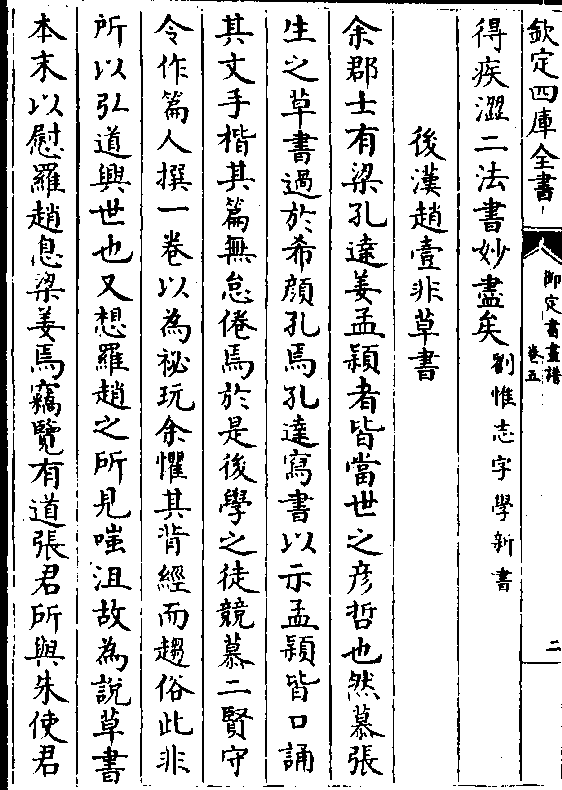 欽定四庫全書
御定書畫譜
卷五
二
得疾澀二法書妙盡矣劉惟志字學新書
後漢趙壹非草書
余郡士有梁孔達姜孟穎者皆當世之彦哲也然慕張
生之草書過於希顔孔焉孔達寫書以示孟穎皆口誦
其文手楷其篇無怠倦焉於是後學之徒競慕二賢守
令作篇人撰一卷以為祕玩余懼其背經而趨俗此非
所以弘道興世也又想羅趙之所見嗤沮故為說草書
本末以慰羅趙息梁姜焉竊覽有道張君所與朱使君